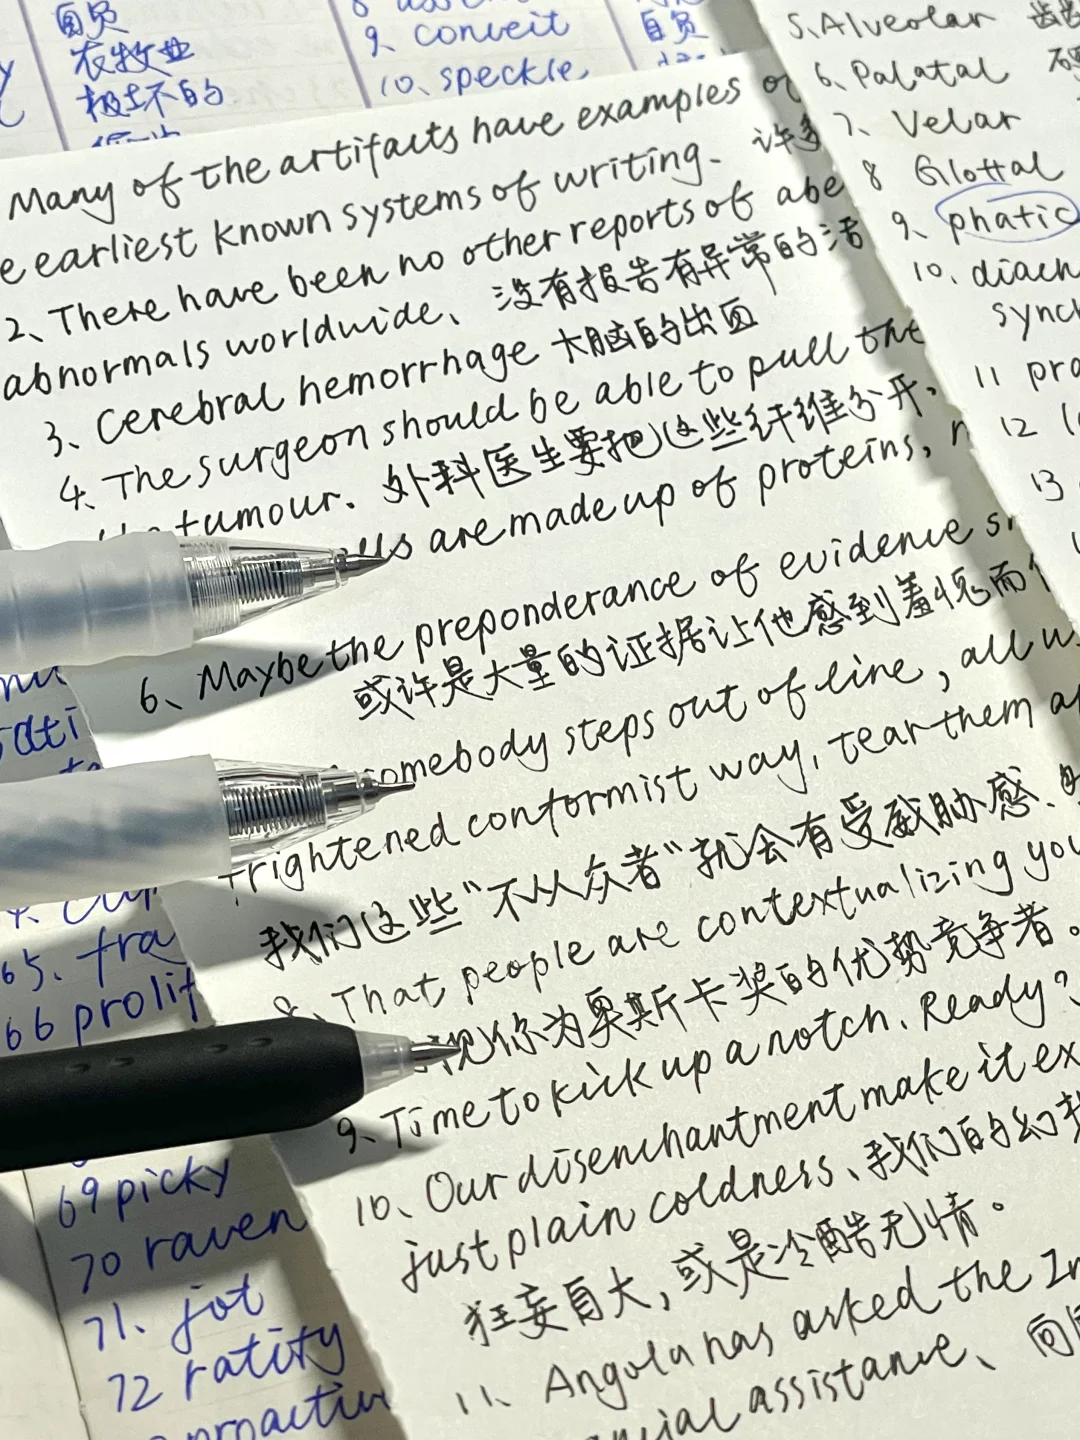 自负
农牧业
极坏的
9、conveit
10、speckle
自负
5.Alveolar
6、Palatal
7、Velar
8 Glottal
9、phatic
10、diach
synch
11 pro
12
13
Many of the artifacts have examples of
earliest known systems of writing. 许多
2、There have been no other reports of abe
abnormals worldwide、没有报告有异常的活
3、Cerebral hemorrhage 大脑的出血
4、The surgeon should be able to pull the
tumour. 外科医生要把这些纤维分开.
are made up of proteins,
6、Maybe the preponderance of evidence
或许是大量的证据让他感到羞愧而
somebody steps out of line, all
frightened conformist way, tear them
我们这些“不从众者”就会有受威胁感.
8、That people are contextualizing you
视你为奥斯卡奖的优势竞争者。
9、Time to kick up a notch. Ready?
10、Our disenchantment make it ex
just plain coldness、我们的幻
狂妄自大,或是冷酷无情。
11、Angola has asked the In
ancial assistance、向
65、fra
66 prolif
69 picky
70 raven
71、jot
72 ratity
proactive